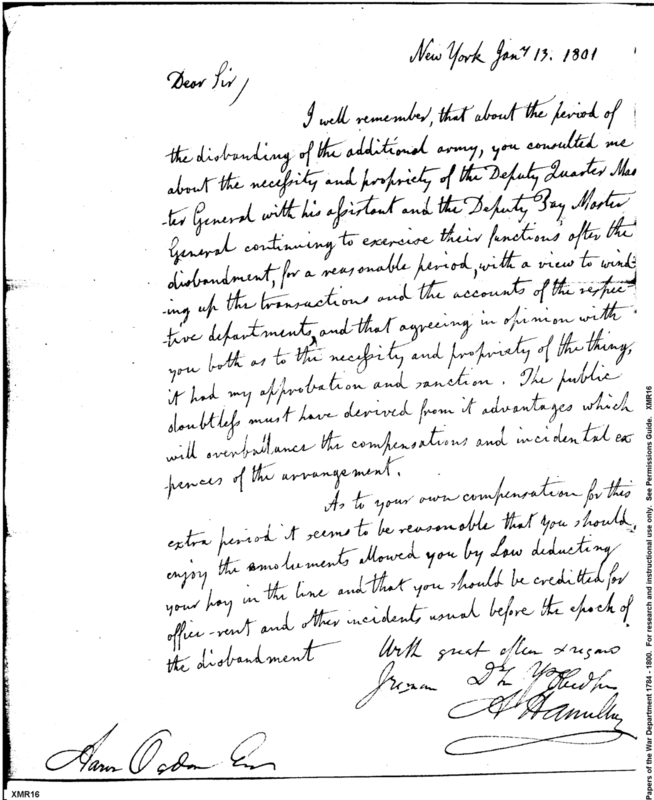 New York Jany 13. 1801
Dear Sir,
I well remember, that about the period of
the disbanding of the additional army, you consulted me
about the necessity and propriety of the Deputy Quarter Mas
-ter General with his assistant and the Deputy Pay Master
General continuing to exercise their functions after the
disbandment, for a reasonable period, with a view to wind-
-ing up the transactions and the accounts of the respec
-tive departments, and that agreeing in opinion with
you both as to the necessity and propriety of the thing,
it had my approbation and sanction. The public
doubtless must have derived from it advantages which
will overballance the compensations and incidental ex
-pences of the arrangement.
As to your own compensation for this
extra period it seems to be reasonable that you should
enjoy the emoluments allowed you by Law deducting
your pay in the line and that you should be creditted for
office-rent and other incidents usual before the epoch of
the disbandment
With great esteem & regard
I remain Dr Sir Yr Obed
A Hamilton
Aaron Ogden Esq
XMR16
Papers of the War Department 1784 - 1800. For research and instructional use only. See Permissions Guide. XMR16